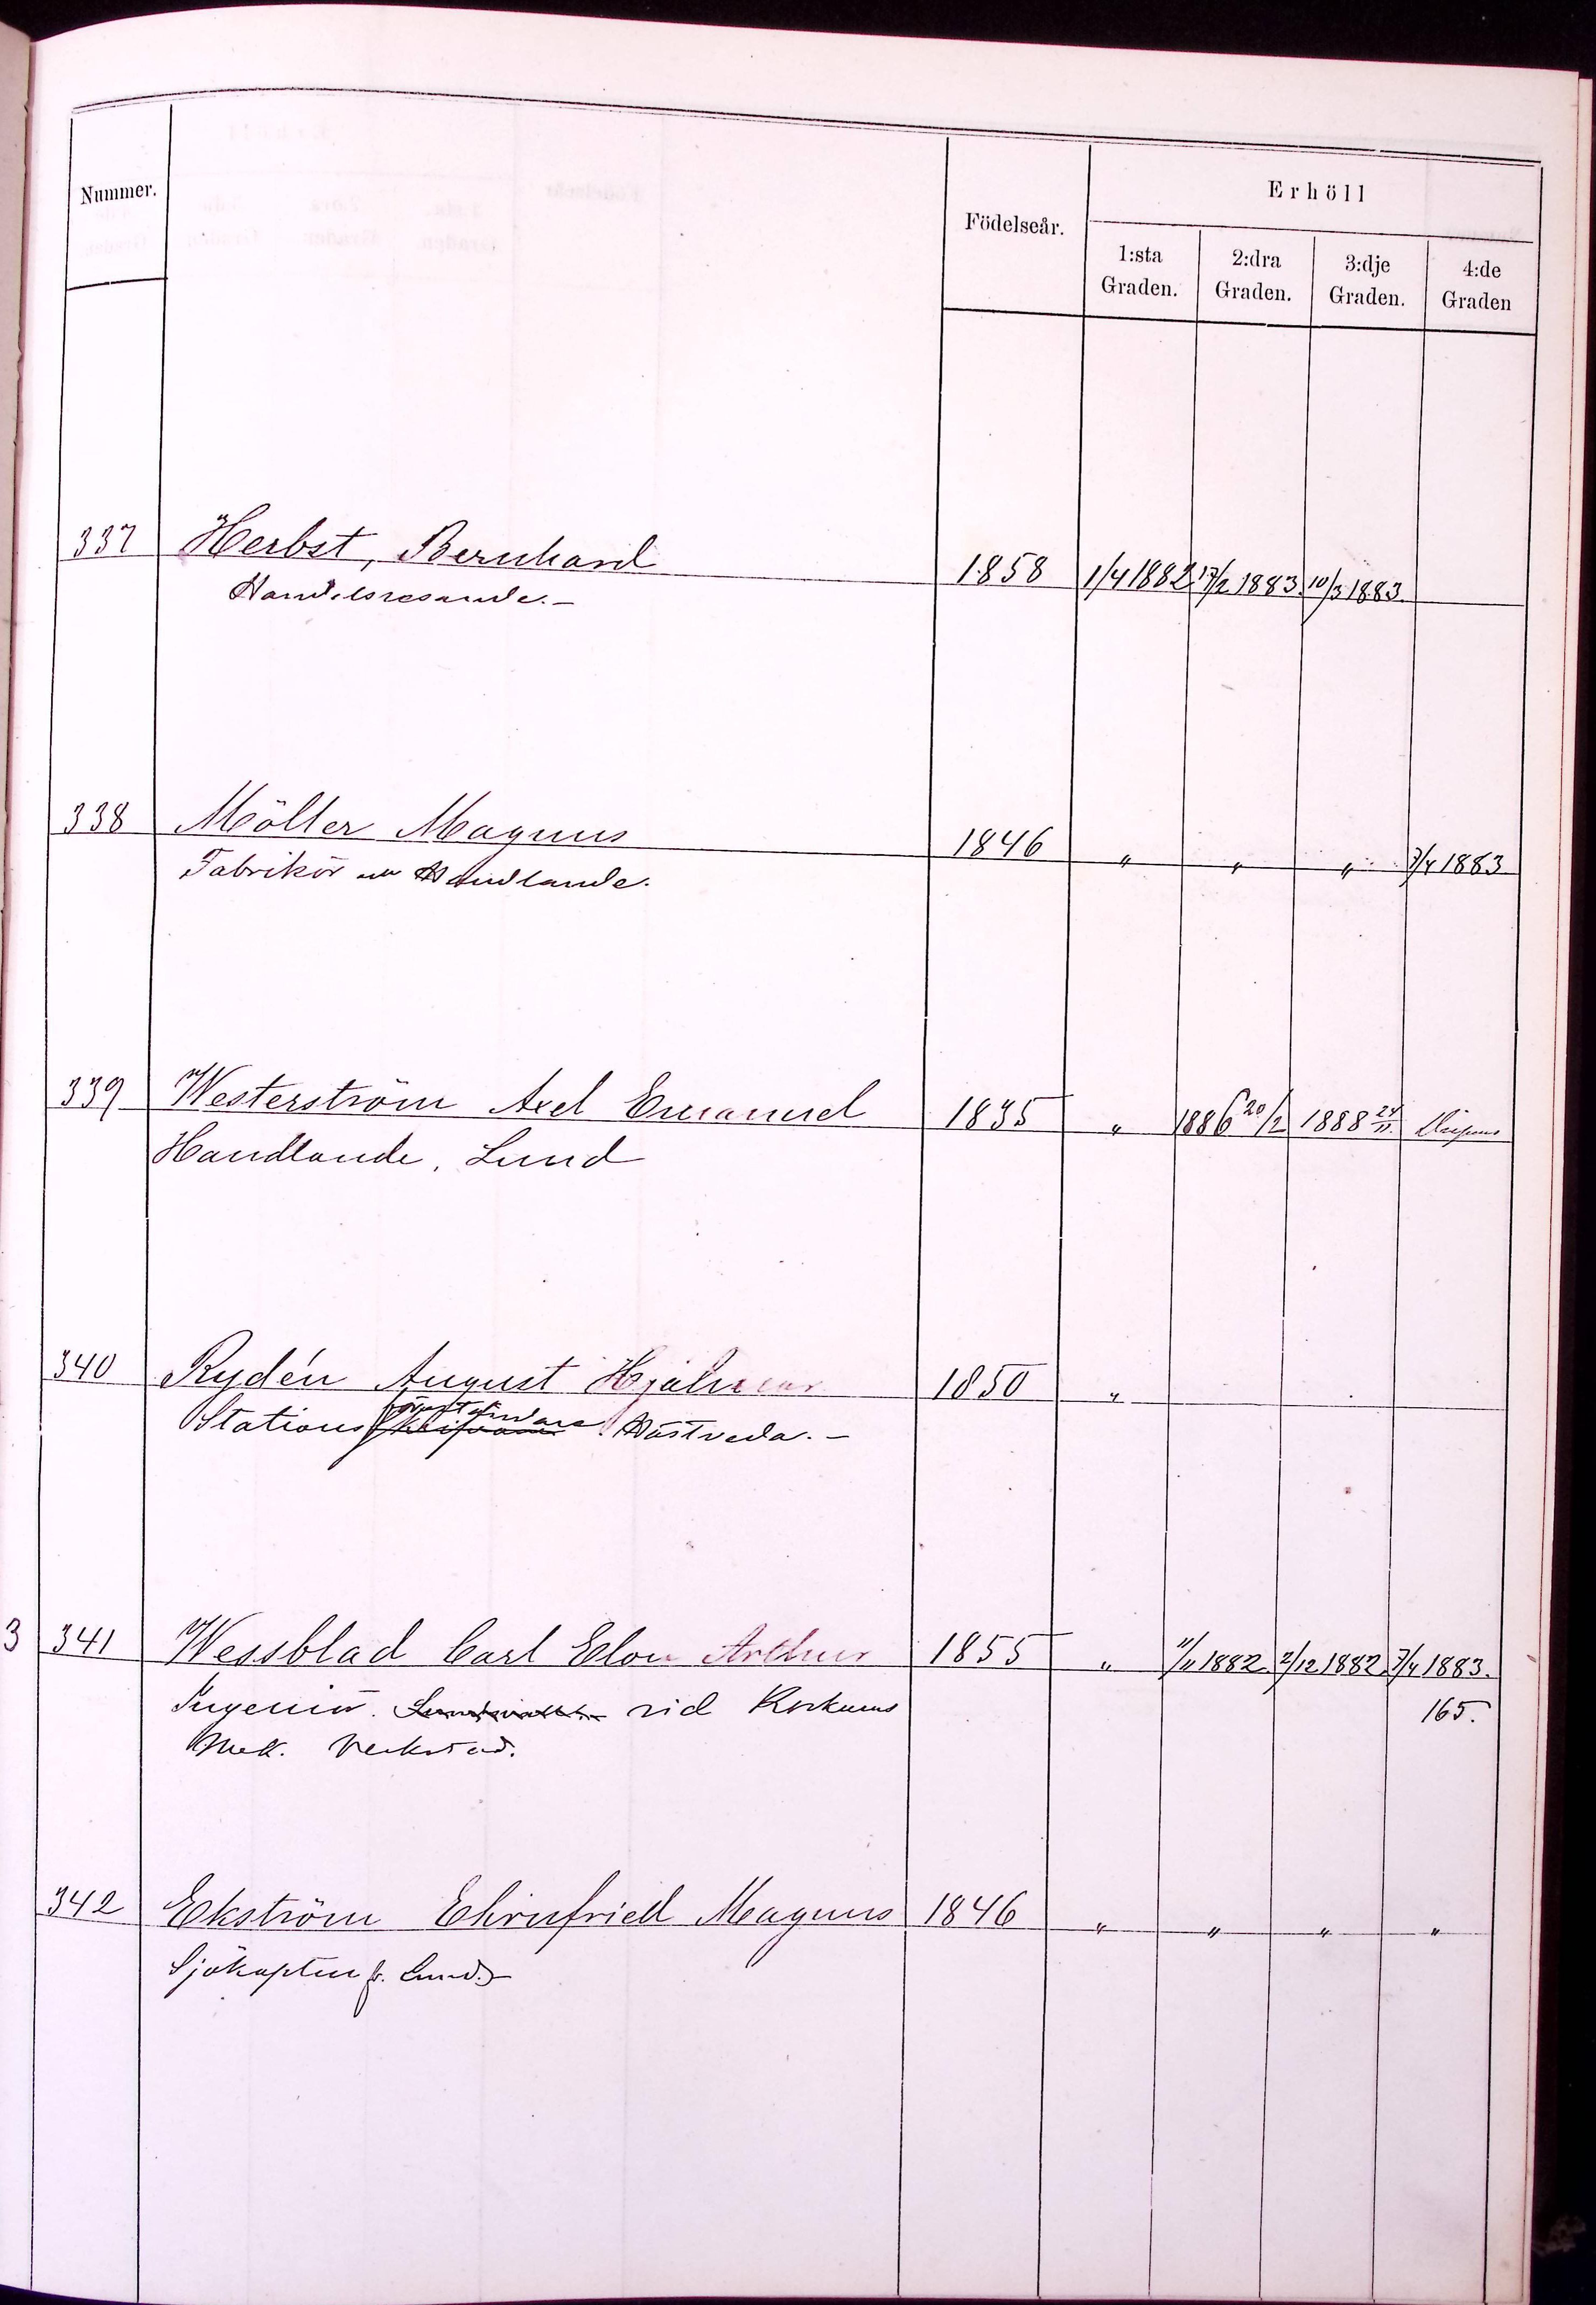 Nummer.
Födelseår.
Erhöll
1:sta Graden.
2:dra Graden.
3:dje Graden.
4:de Graden
337 Herbst, Bernhard 1858 1/4 1882 17/2 1883. 10/3 1883.
Handelsresande. –
338 Möller Magnus 1846 " " " 7/4 1883
Fabrikör Handlande.
339 Westerström Axel Emanuel 1835 " 1886 20/2 1888 24/11.
Handlande, Lund
340 Rydén August Hjalmar 1850 "
föreståndare
Stations Hästveda. –
3 341 Wessblad Carl Elon Arthur 1855 " 11/11 1882. 2/12 1882. 7/4 1883.
Ingeniör. vid Kockums 165.
Mek. Verkstad.
342 Ekström Ehrnfried Magnus 1846 " " " "
Sjökapten fr. Lund. –